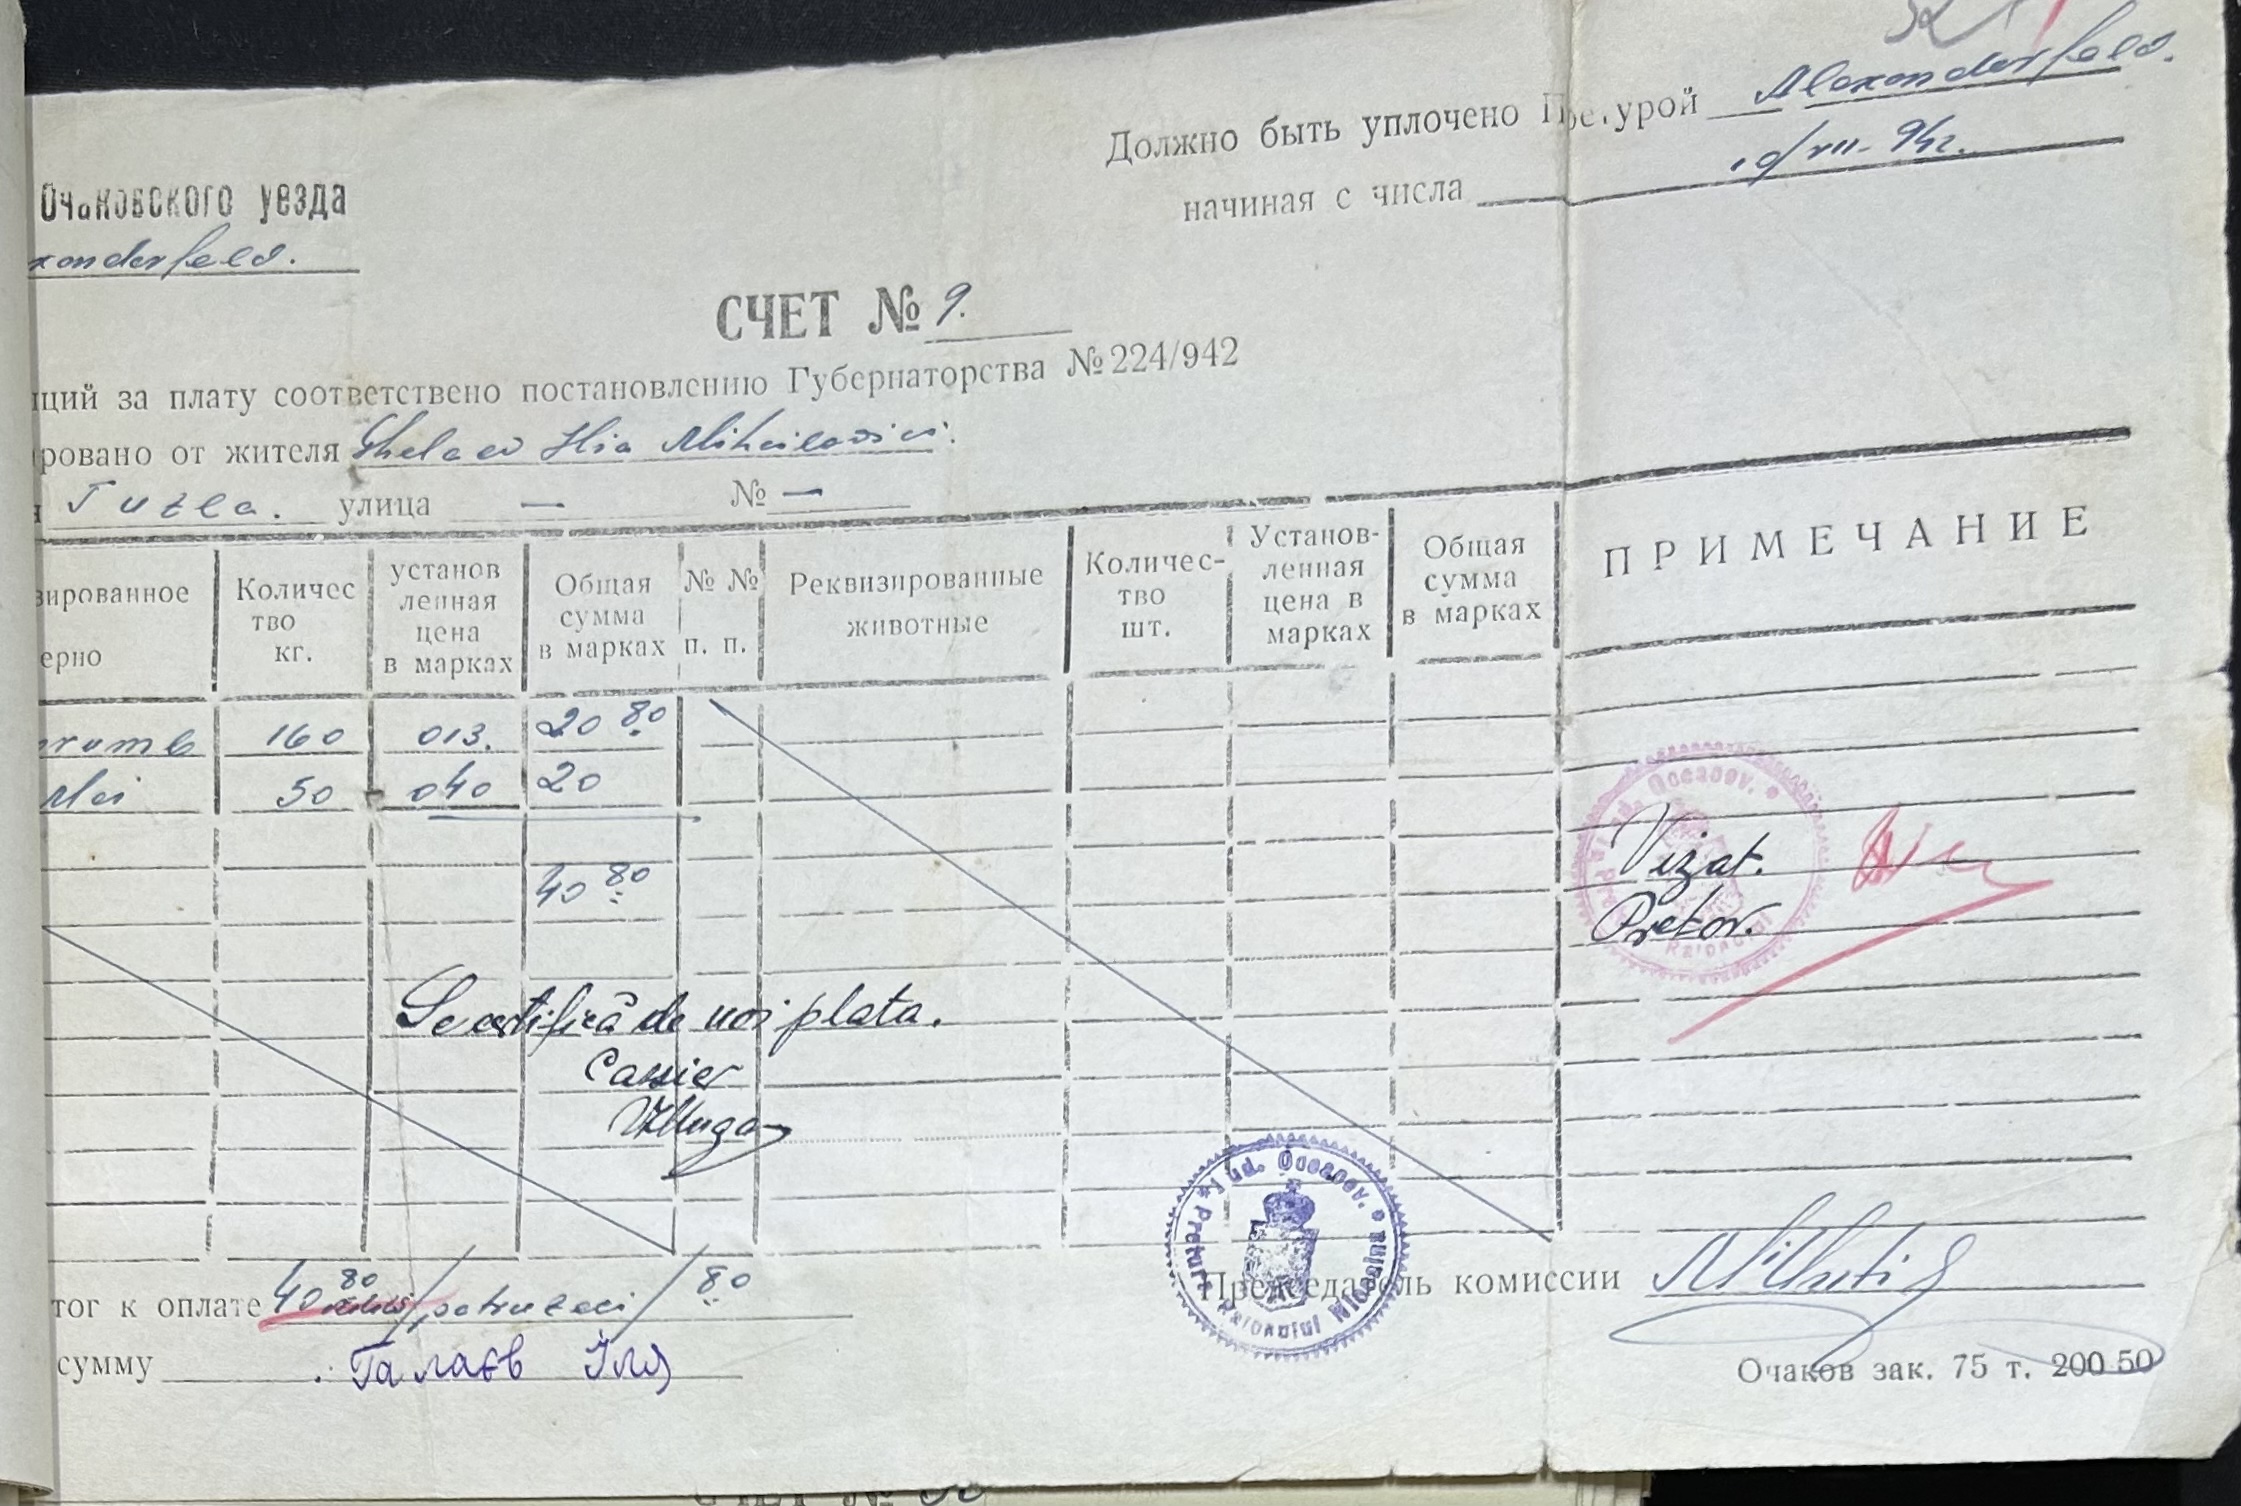 Должно быть уплочено Претурой Alexanderfeld.
начиная с числа 10/VII-942.
Очаковского уезда
xanderfeld.
СЧЕТ № 9.
щий за плату соответствено постановлению Губернаторства № 224/942
ровано от жителя Ilia Mihailovici.
Tuzla. улица — № —
зированное
ерно
Количес
тво
кг.
установ
ленная
цена
в марках
Общая
сумма
в марках
№ №
п. п.
Реквизированные
животные
Количес-
тво
шт.
Установ-
ленная
цена в
марках
Общая
сумма
в марках
ПРИМЕЧАНИЕ
160 013. 20 80
Mei 50 040 20
40 80
Vizat.
Pretor.
Se certifică de noi plata.
Casier
Jud. Oceacov. * Pretura Raionului
Jud. Oceacov. * Pretura Raionului
тог к оплате 40 80 /patruzeci/ 80
Председатель комиссии
сумму Галаєв Іля
Очаков зак. 75 т. 200 50